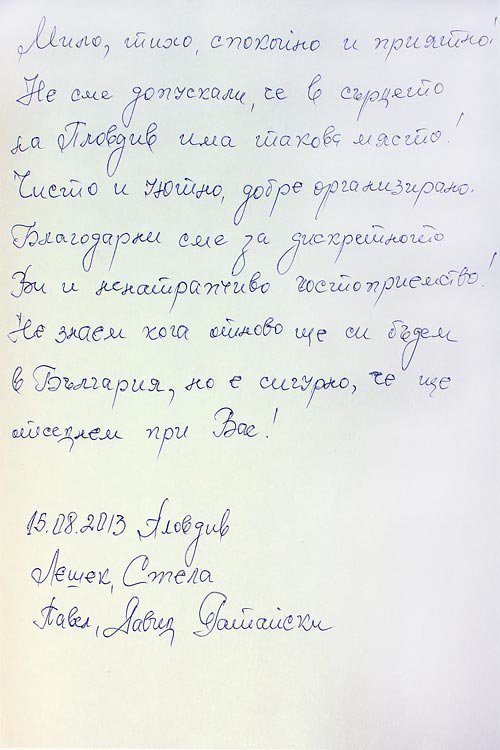 Мило, тихо, спокойно и приятно!
Не сме допускали, че в сърцето
на Пловдив има такова място!
Чисто и уютно, добре организирано.
Благодарни сме за дискретното
Ви и ненатрапчиво гостоприемство!
Не знаем кога отново ще си бъдем
в България, но е сигурно, че ще
отседнем при Вас!
15.08.2013 Пловдив
Лешек, Стела
Павел, Давид